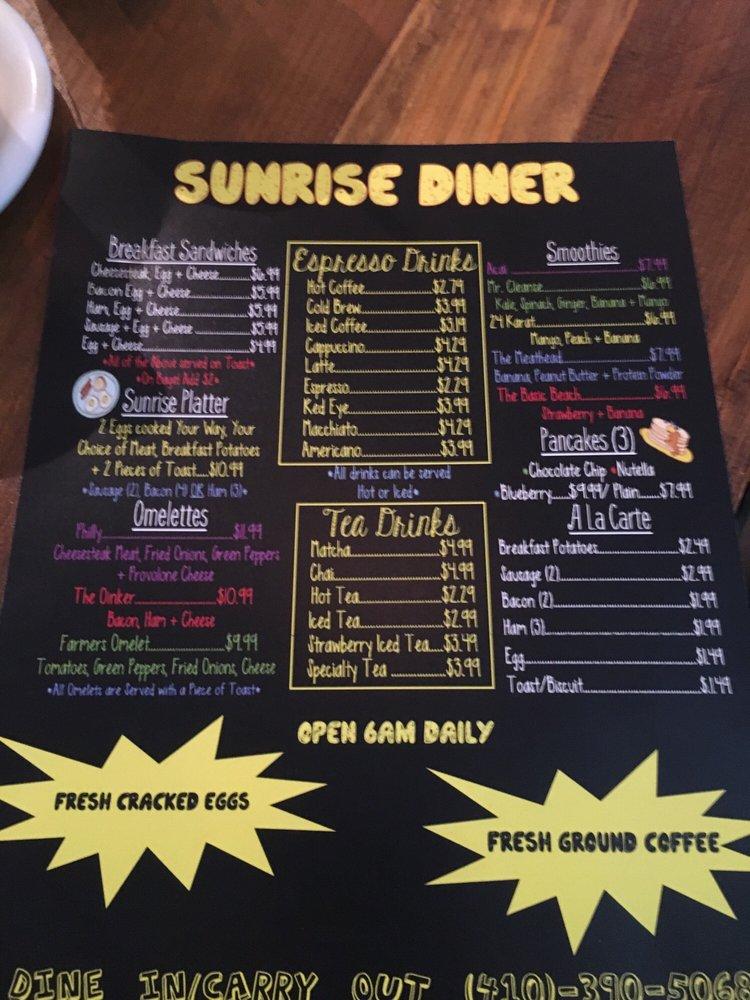 SUNRISE DINER
Breakfast Sandwiches
Cheesesteak, Egg + Cheese.......$6.99
Bacon Egg + Cheese.......$5.99
Ham, Egg + Cheese.......$5.99
Sausage + Egg + Cheese.......$5.99
Egg + Cheese.......$4.99
•All of the Above served on Toast•
•On Bagel Add $2•
Sunrise Platter
2 Eggs cooked Your Way, Your
Choice of Meat, Breakfast Potatoes
+ 2 Pieces of Toast....$10.99
•Sausage (2), Bacon (4) OR Ham (3)•
Omelettes
Philly.......$11.99
Cheesesteak Meat, Fried Onions, Green Peppers
+ Provolone Cheese
The Oinker.......$10.99
Bacon, Ham + Cheese
Farmers Omelet.......$9.99
Tomatoes, Green Peppers, Fried Onions, Cheese
•All Omelets are Served with a Piece of Toast•
Espresso Drinks
Hot Coffee.......$2.79
Cold Brew.......$3.99
Iced Coffee.......$3.19
Cappuccino.......$4.29
Latte.......$4.29
Espresso.......$2.29
Red Eye.......$3.99
Macchiato.......$4.29
Americano.......$3.99
•All drinks can be served
Hot or Iced•
Tea Drinks
Matcha.......$4.99
Chai.......$4.99
Hot Tea.......$2.29
Iced Tea.......$2.99
Strawberry Iced Tea....$3.49
Specialty Tea.......$3.99
Smoothies
Acai.......$7.99
Mr. Cleanse.......$6.99
Kale, Spinach, Ginger, Banana + Mango
24 Karat.......$6.99
Mango, Peach + Banana
The Meathead.......$7.99
Banana, Peanut Butter + Protein Powder
The Basic Beach.......$6.99
Strawberry + Banana
Pancakes (3)
•Chocolate Chip •Nutella
•Blueberry.....$9.99/ Plain.....$7.99
A La Carte
Breakfast Potatoes.......$2.49
Sausage (2).......$2.99
Bacon (2).......$1.99
Ham (3).......$1.99
Egg.......$1.49
Toast/Biscuit.......$1.49
OPEN 6AM DAILY
FRESH CRACKED EGGS
FRESH GROUND COFFEE
DINE IN/CARRY OUT (410)-390-5068